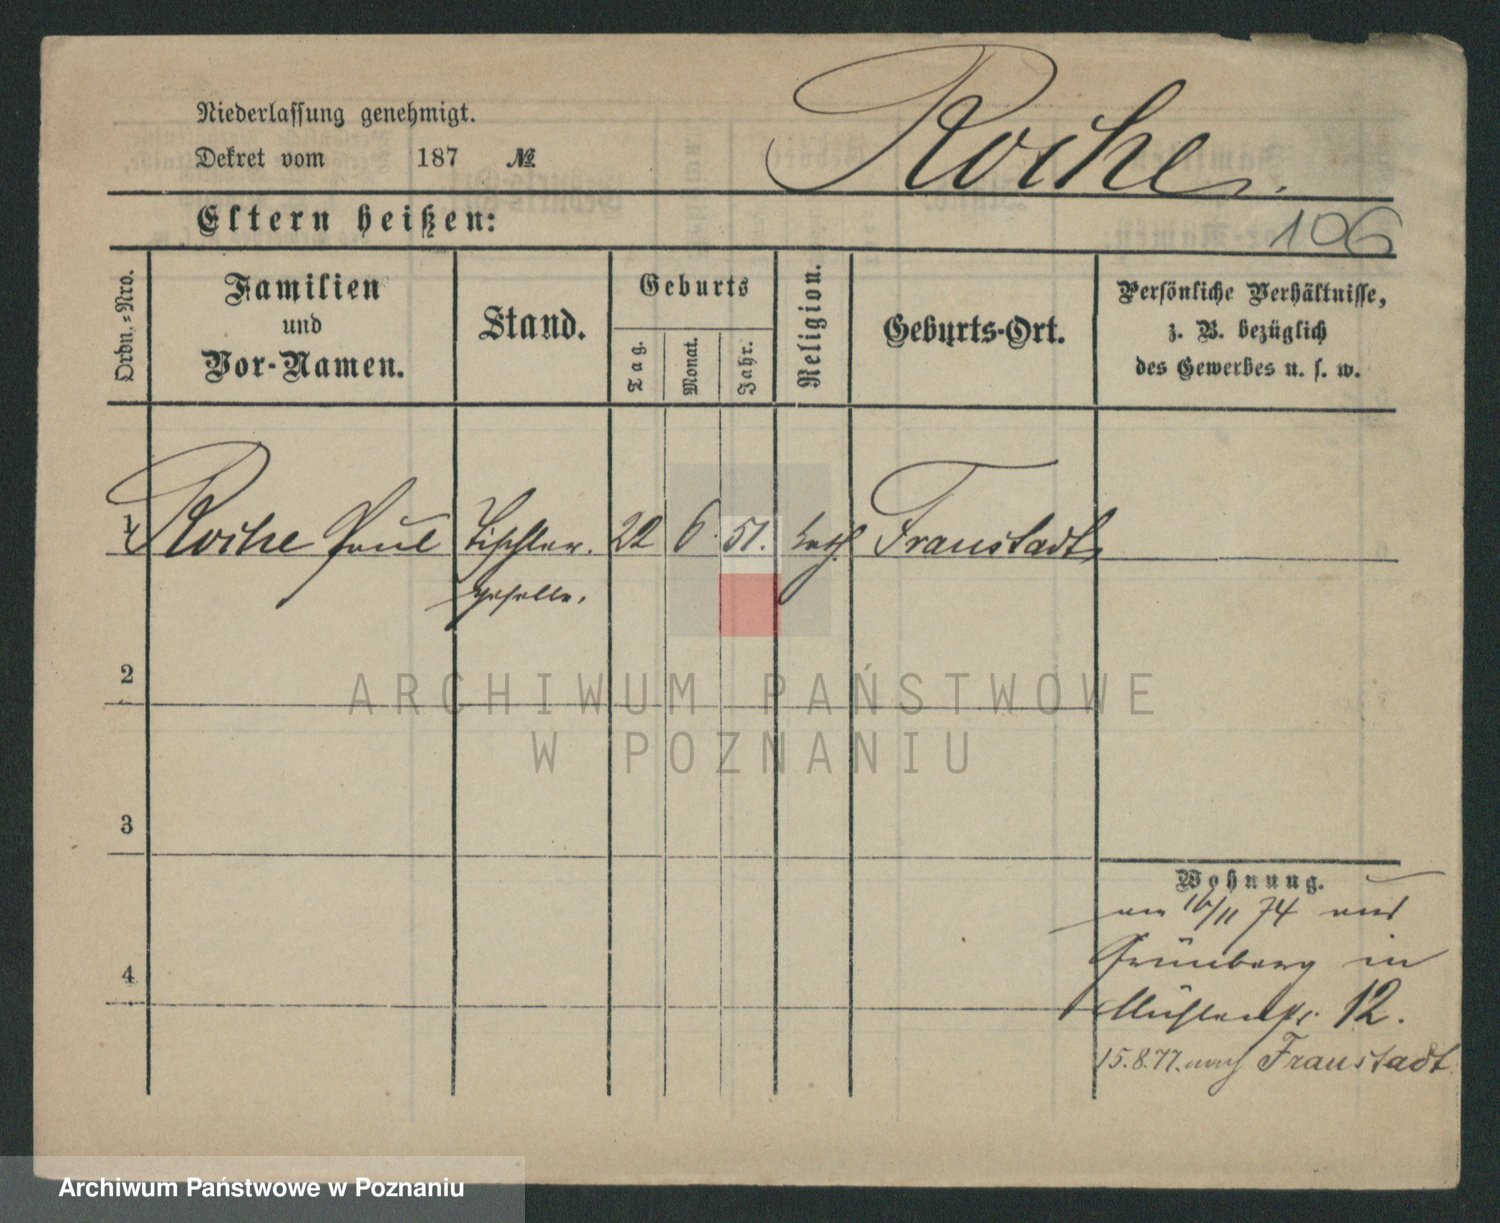 Niederlassung genehmigt.
Dekret vom 187 №
Rothe.
106
Eltern heißen:
Ordn.-Nro.
Familien
und
Vor-Namen.
Stand.
Geburts
Tag.
Monat.
Jahr.
Religion.
Geburts-Ort.
Persönliche Verhältnisse,
z. B. bezüglich
des Gewerbes u. s. w.
1 Rothe Paul Tischler- 22 6. 51. kath. Fraustadt
geselle.
2
ARCHIWUM PAŃSTWOWE
W POZNANIU
3
4
Wohnung.
am 16/11 74 aus
Grünberg in
Mühlenstr. 12.
15.8.77. nach Fraustadt
Archiwum Państwowe w Poznaniu